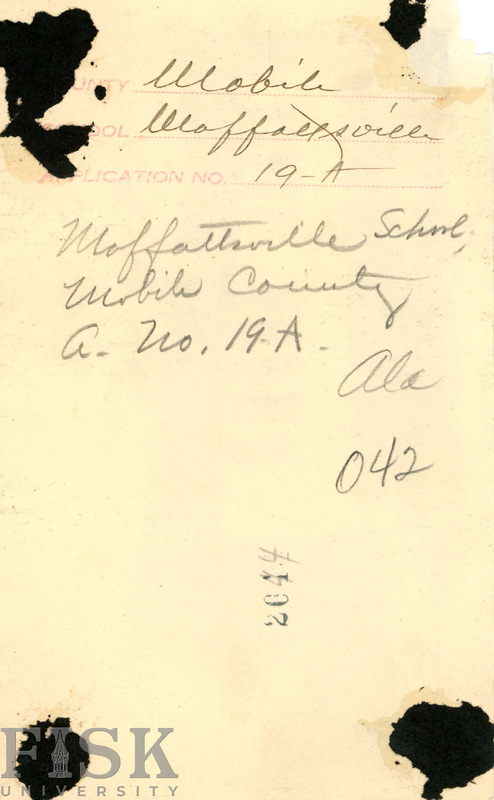 COUNTY Mobile
SCHOOL Moffattsville
APPLICATION NO. 19-A
Moffattsville School,
Mobile County
A. No. 19-A.
Ala
042
2644
FISK
UNIVERSITY